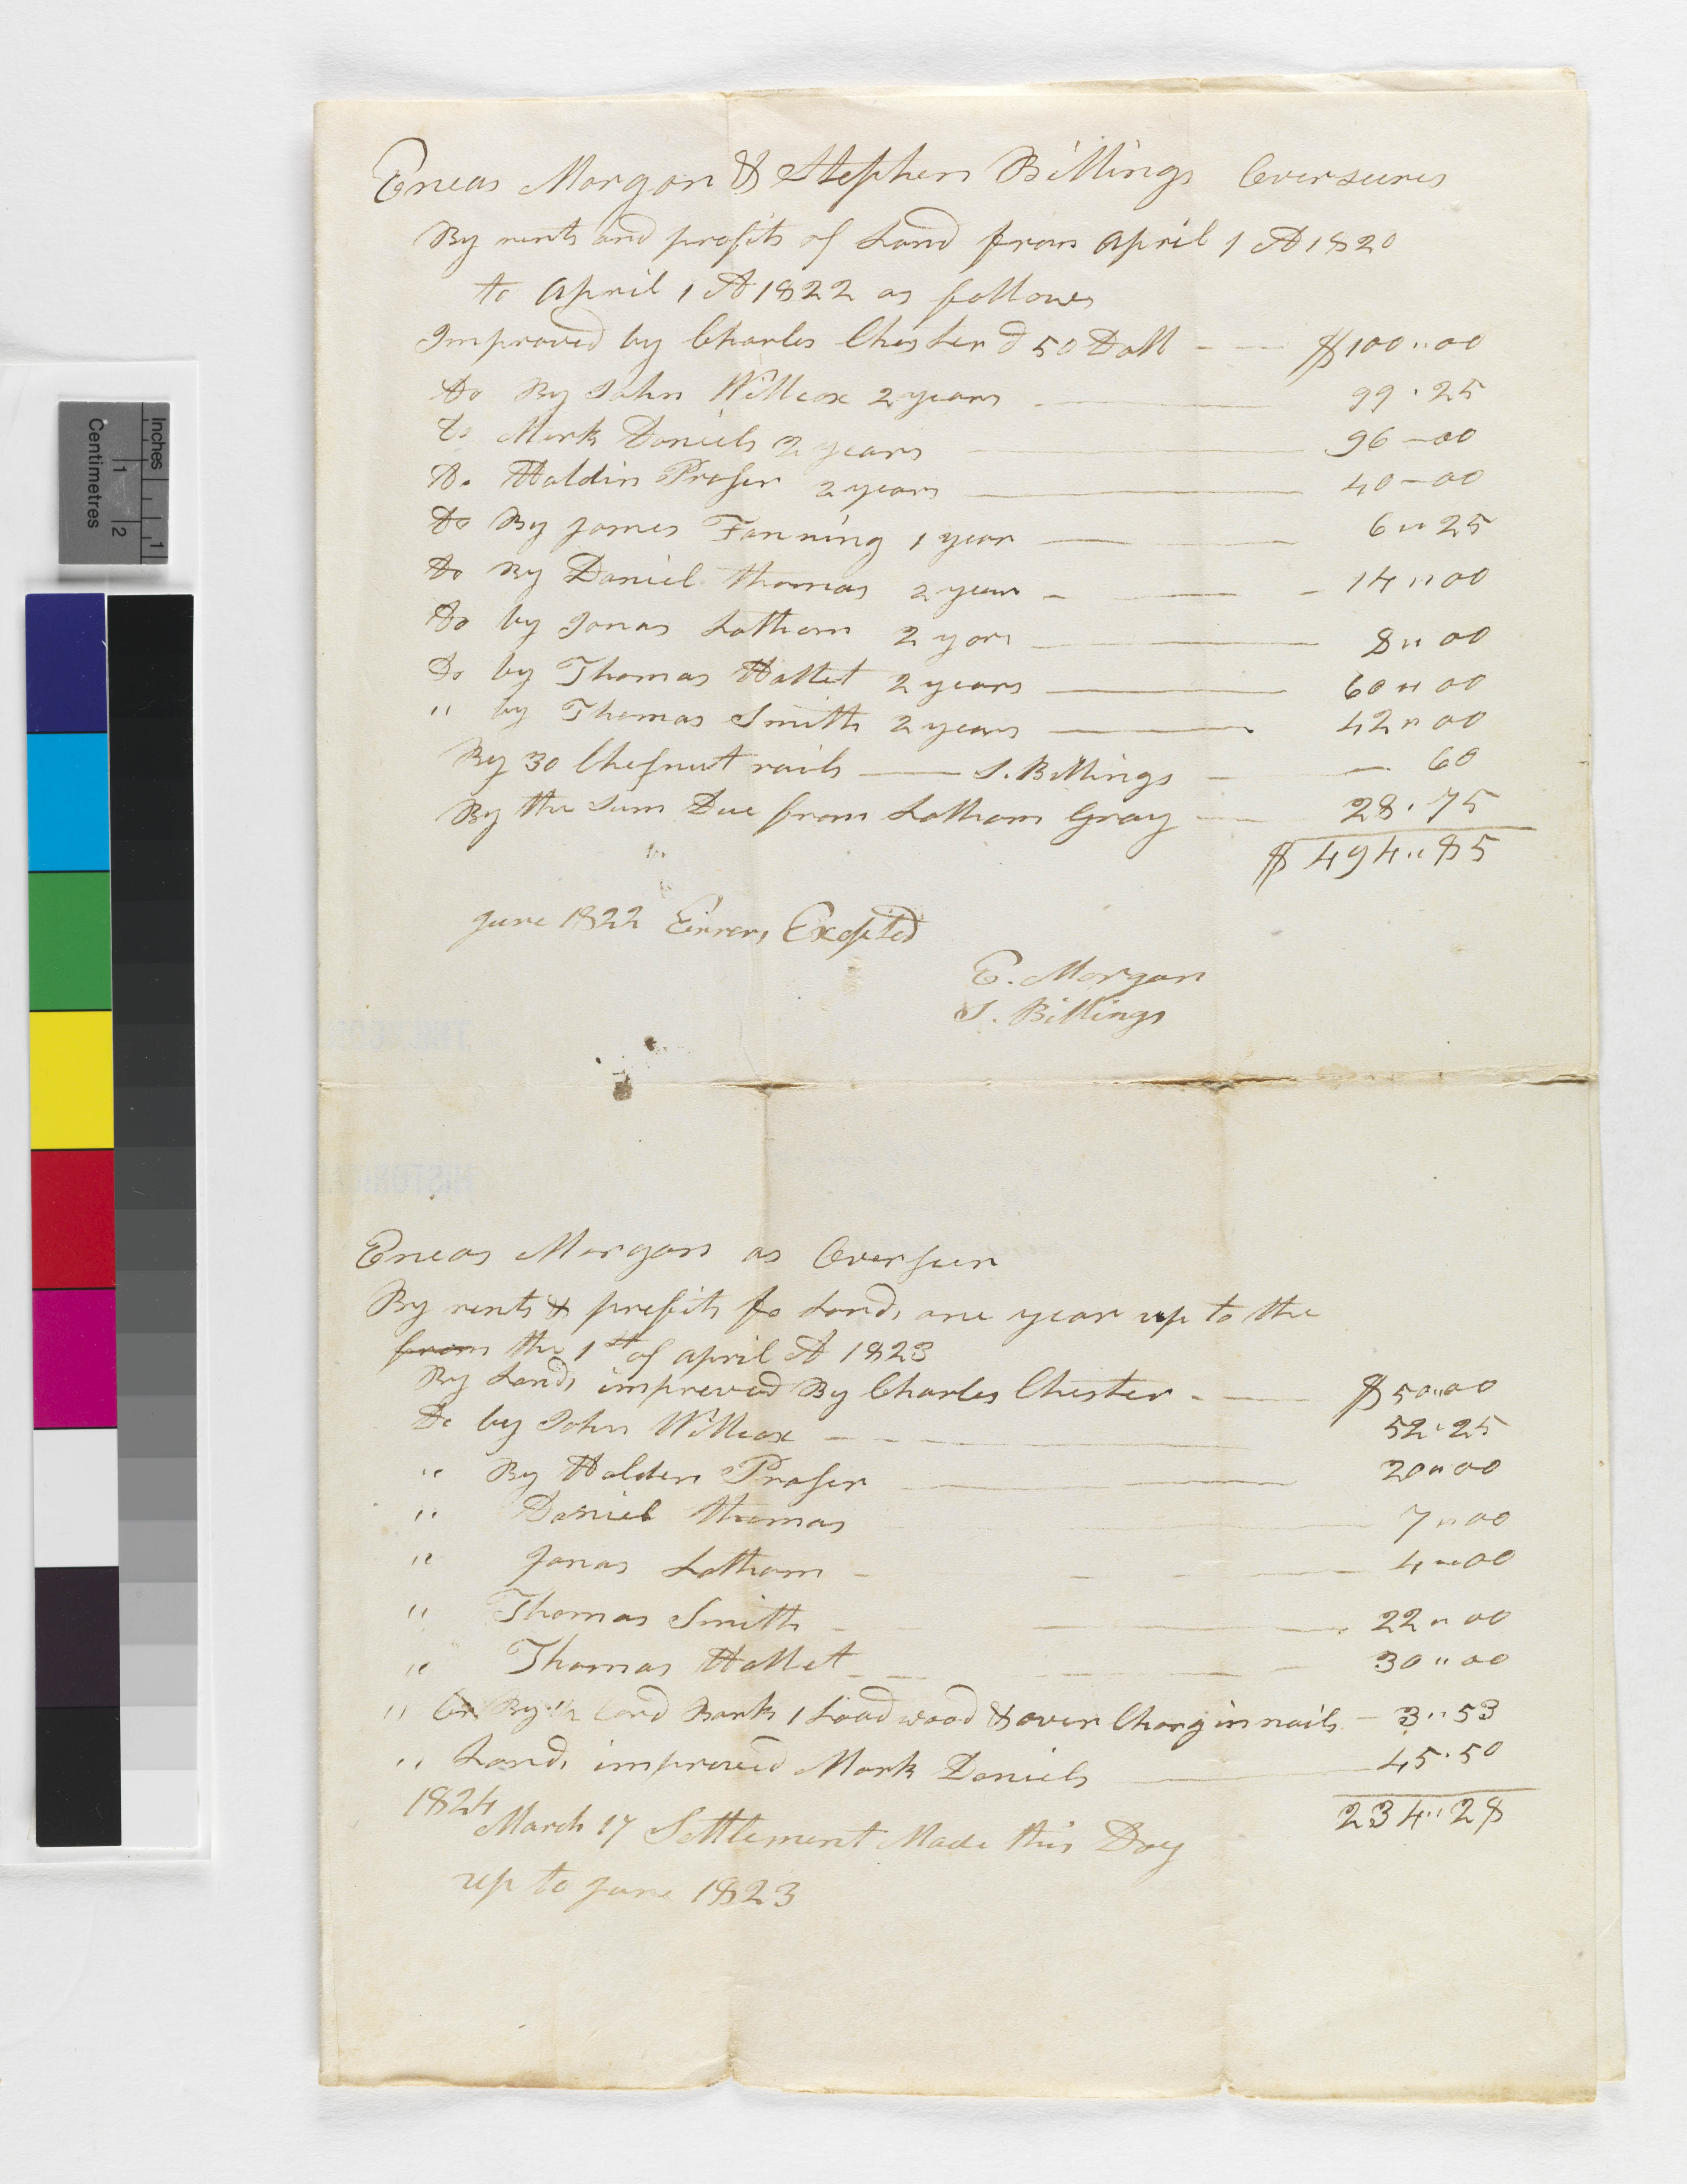 Eneas Morgan & Stephen Billings Overseures
By rents and profits of Land from april 1 A 1820
to april 1 A 1822 as follows
Improved by Charles Chester @ 50 Doll $100"00
Do By John Willcox 2 years 99.25
Do Mark Daniels 2 years 96-00
Do Holdin Proser 2 years 40-00
Do By James Fanning 1 year 6"25
Do By Daniel thomas 2 years 14"00
Do by Jonas Latham 2 years 8"00
Do by Thomas Hallet 2 years 60"00
" by Thomas Smith 2 years 42"00
By 30 Chesnut rails S. Billings 60
By the Sum Due from Latham Gray 28.75
$494"85
June 1822 Errors Excepted
E. Morgan
S. Billings
Eneas Morgan as Overseer
By rents & profits fo Lands one year up to the
from the 1st of april A 1823
By Lands improved By Charles Chester $50"00
Do by John Willcox 52"25
" By Holden Proser 20"00
" Daniel thomas 7"00
" Jonas Latham 4"00
" Thomas Smith 22"00
" Thomas Hallet 30"00
" By 1/2 Cord Bark 1 Load wood & over Charg in rails 3"53
" Lands improved Mark Daniels 45.50
234"28
1824
March 17 Settlement Made this Day
up to June 1823
Inches
1
Centimetres
1
2